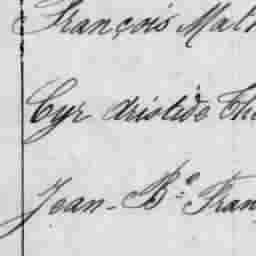 François Math
Cyr Aristide Th
Jean-Bte Fran